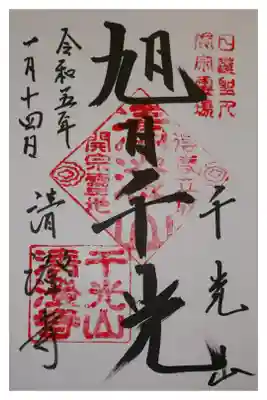 日蓮聖人
開宗霊場
千光山
旭日千光
清澄山
開宗霊地
令和五年
一月十四日
清澄寺
千光山
清澄寺